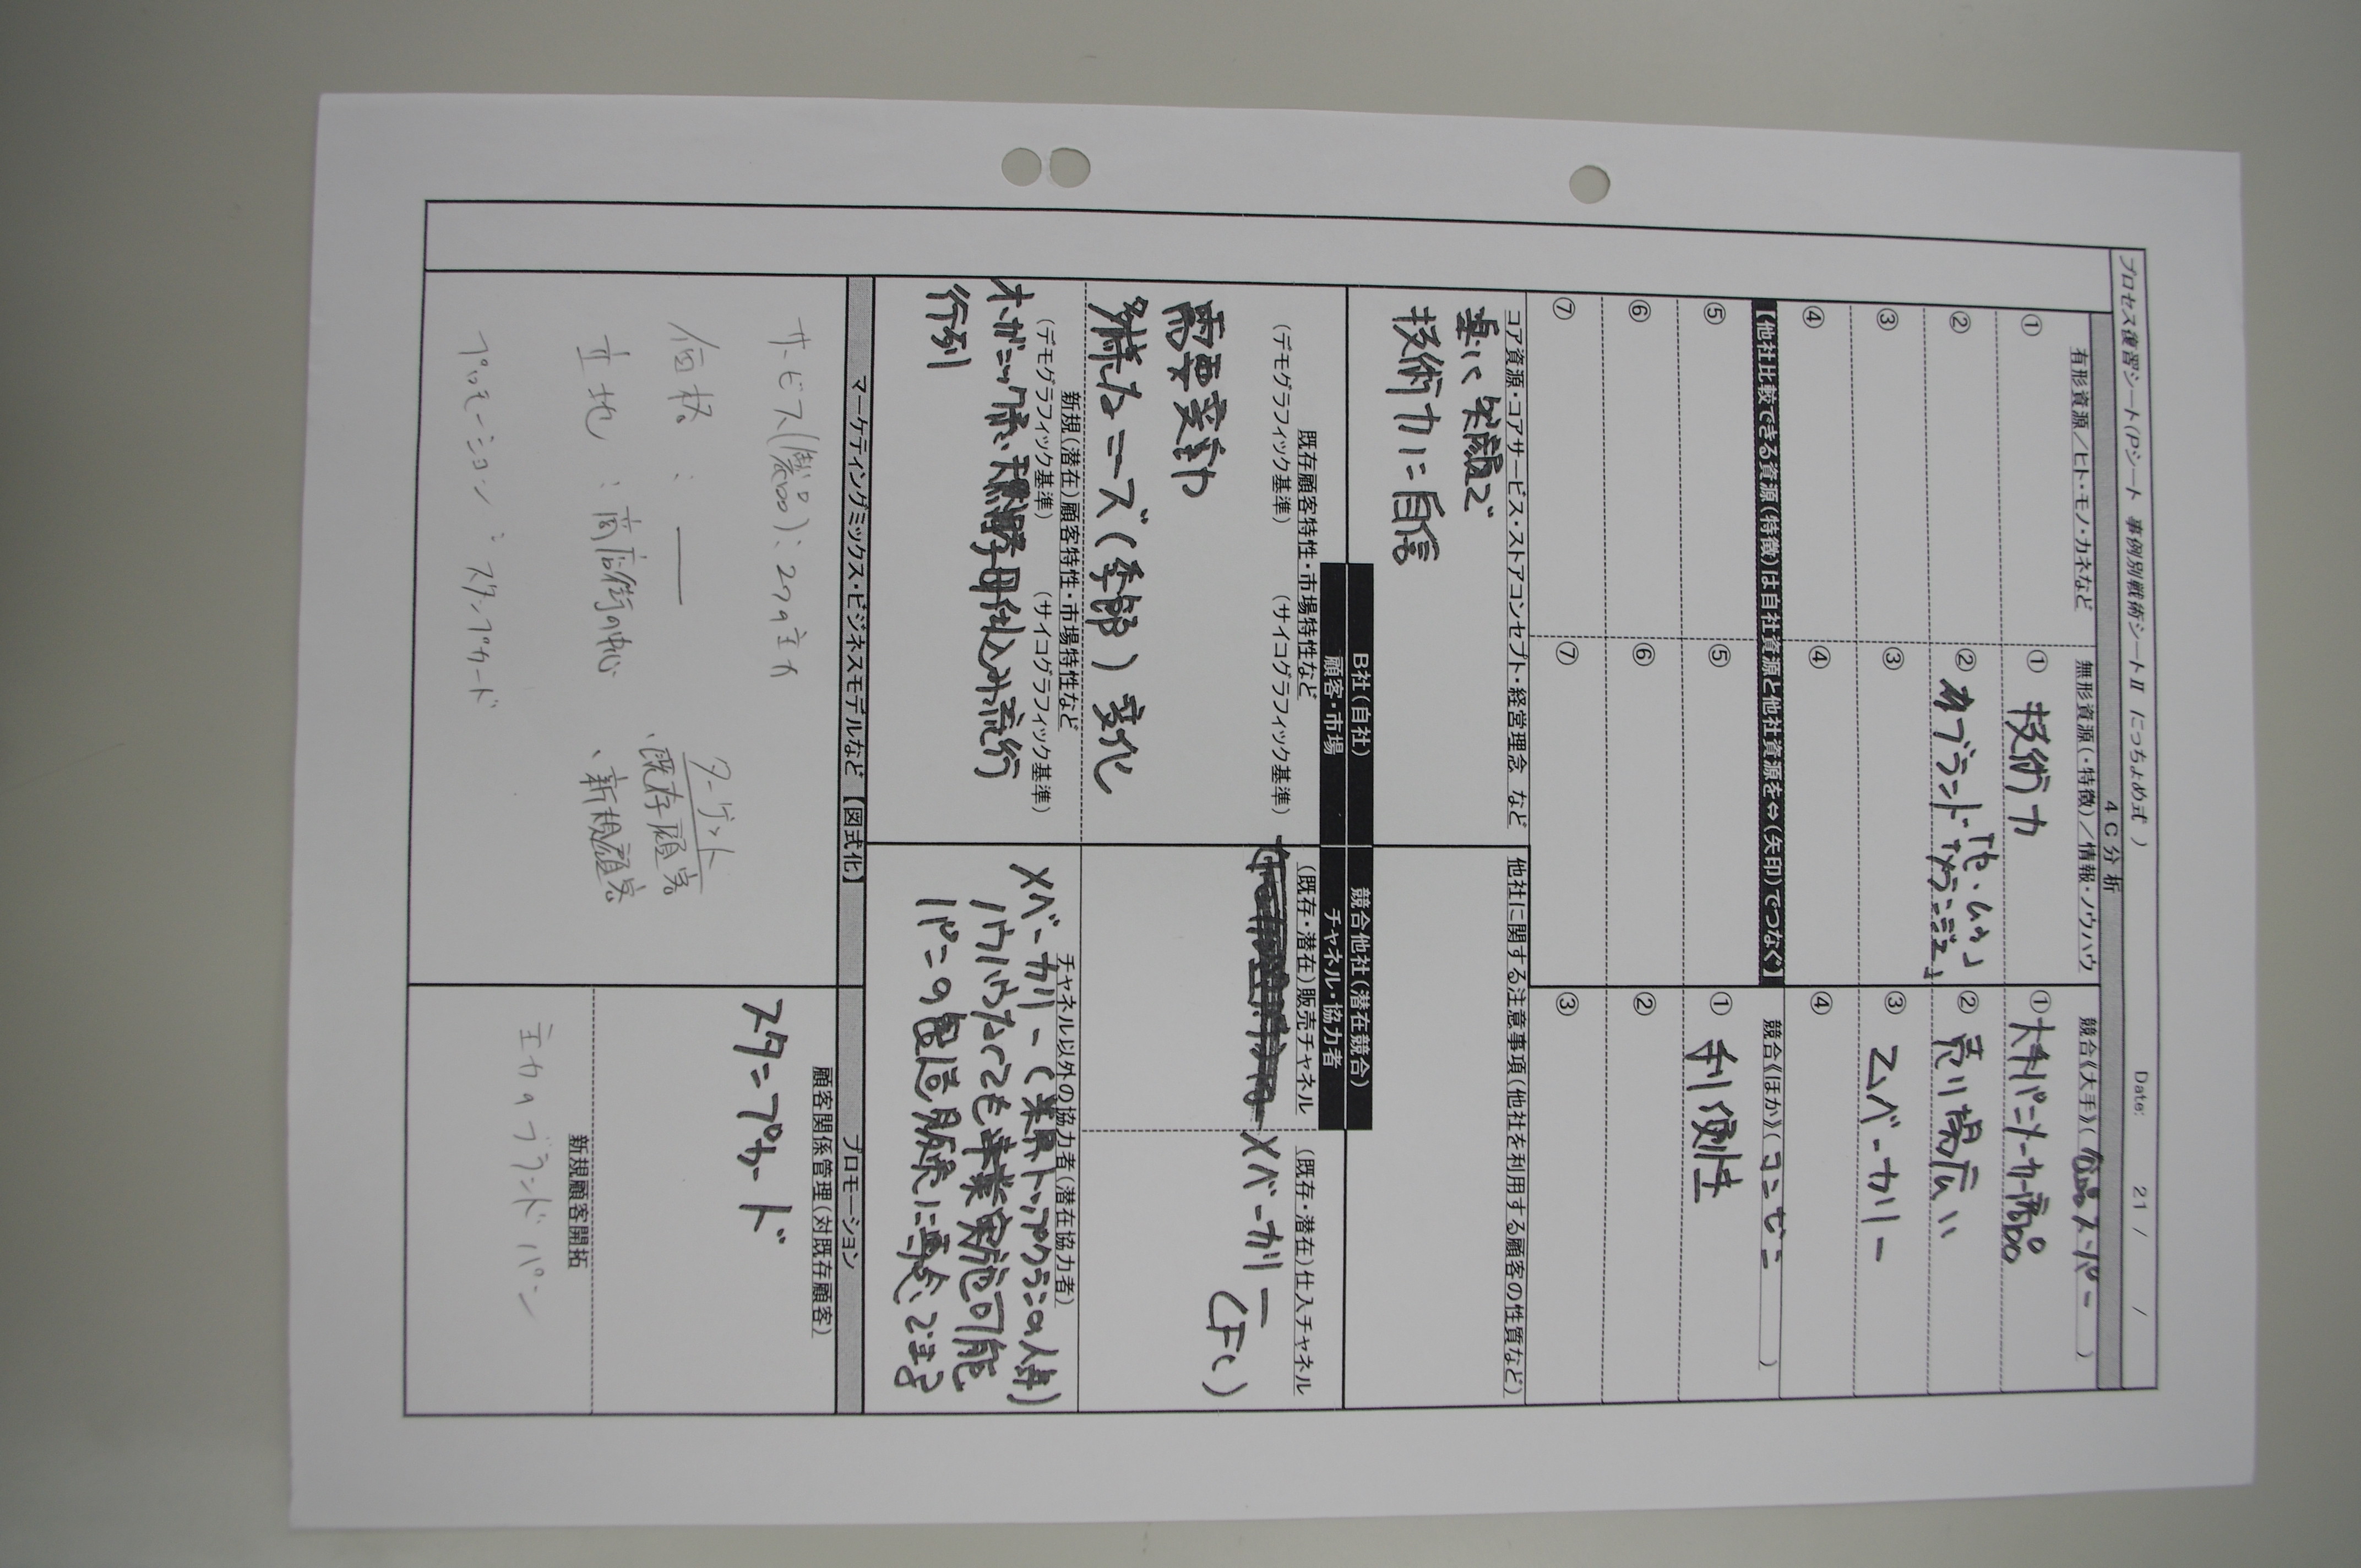 プロセス復習シート(Pシート 事例別戦術シートⅡ にっちょめ式 )
Date: 21 / /
4C分析
有形資源／ヒト・モノ・カネなど
無形資源(・特徴)／情報・ノウハウ
競合《大手》( スーパー )
①
① 技術力
① 大手パンメーカー商品
②
② ブランド
② 売り場広い
③
③
③ Zベーカリー
④
④
④
【他社比較できる資源(特徴)は自社資源と他社資源を⇔(矢印)でつなぐ】
競合《ほか》( コンビニ )
⑤
⑤
① 利便性
⑥
⑥
②
⑦
⑦
③
コア資源・コアサービス・ストアコンセプト・経営理念 など
技術力に自信
他社に関する注意事項(他社を利用する顧客の性質など)
B社(自社)
競合他社(潜在競合)
顧客・市場
チャネル・協力者
既存顧客特性・市場特性など
(デモグラフィック基準)
(サイコグラフィック基準)
需要変動
ニーズ(季節)変化
(既存・潜在)販売チャネル
(既存・潜在)仕入チャネル
Xベーカリー
(FC)
新規(潜在)顧客特性・市場特性など
(デモグラフィック基準)
(サイコグラフィック基準)
行列
チャネル以外の協力者(潜在協力者)
Xベーカリー(業界トップクラスの人材)
ノウハウなくても事業実施可能
パンの製造販売に専念できる
マーケティングミックス・ビジネスモデルなど 【図式化】
サービス(製品):
価格 : ―
立地 : 商店街の中心
プロモーション : スタンプカード
ターゲット
、既存顧客
、新規顧客
プロモーション
顧客関係管理(対既存顧客)
スタンプカード
新規顧客開拓
主力のブランドパン